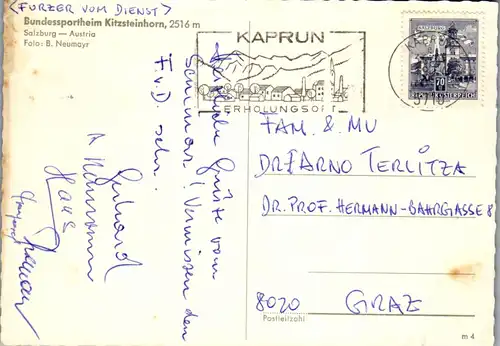 <FURZER VOM DIENST>
Bundessportheim Kitzsteinhorn, 2516 m
Salzburg — Austria
Foto: B. Neumayr
KAPRUN
ERHOLUNGSORT
70
REPUBLIK ÖSTERREICH
Herzliche Grüße vom
Seminar! Vermissen den
F.v.D. sehr.
Gerhard
Hans
FAM. & MU
DR. ARNO TERLITZA
DR. PROF. HERMANN-BAHRGASSE 8
8020 GRAZ
Postleitzahl
m 4